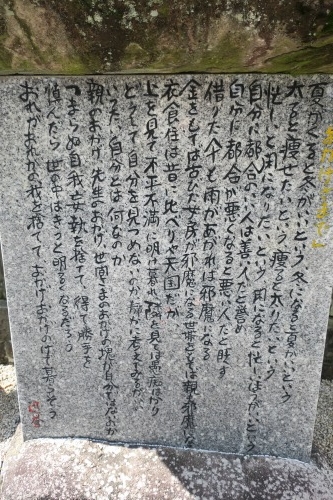 夏がくると冬がいいという 冬になると夏がいいという
太ると痩せたいという 痩せると太りたいという
忙しいと閑になりたいという 閑になると忙しいほうがいいという
自分に都合のいい人は善い人だと誉め
自分に都合が悪くなると悪い人だと貶す
借りた傘も雨があがれば邪魔になる
金をもてば古びた女房が邪魔になる 世帯をもてば親さえ邪魔になる
衣食住は昔に比べりゃ天国だが
上を見て不平不満に明け暮れ 隣を見ては愚痴ばかり
どうして自分を見つめないのか 静かに考えてみるがよい
いったい自分とは何なのか
親のおかげ 先生のおかげ 世間さまのおかげの塊が自分ではないか
つまらぬ自我妄執を捨てて 得手勝手を
慎んだら 世の中はきっと明るくなるだろう
おれがおれがの我を捨てて おかげおかげの下で暮らそう